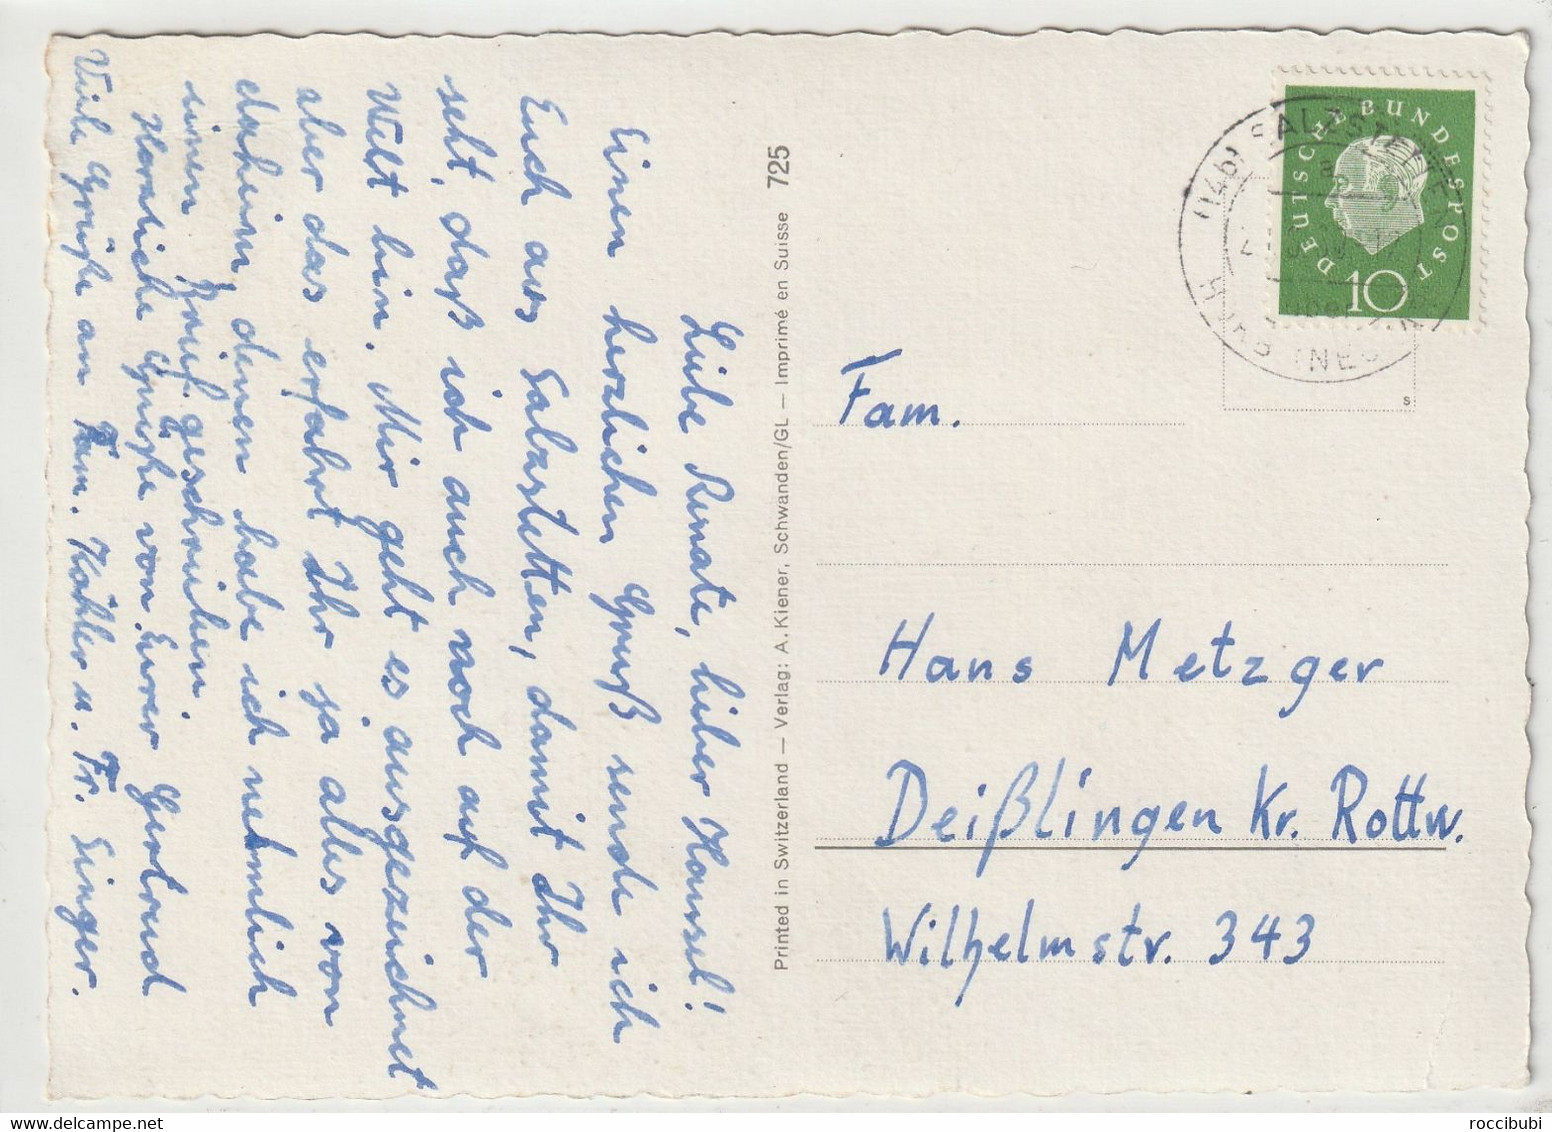 Liebe Renate, lieber Hansel!
Einen herzlichen Gruß sende ich
Euch aus Salzstetten, damit Ihr
seht, daß ich auch noch auf der
Welt bin. Mir geht es ausgezeichnet
aber das erfahrt Ihr ja alles von
daheim denen habe ich nehmlich
einen Brief geschrieben.
Herzliche Grüße von Eurer Gertrud
Viele Grüße an Fam. Kähler u. Fr. Singer.
Printed in Switzerland — Verlag: A. Kiener, Schwanden/GL — Imprimé en Suisse 725
DEUTSCHE BUNDESPOST
10
(14b) SALZSTETTEN
s
Fam.
Hans Metzger
Deißlingen Kr. Rottw.
Wilhelmstr. 343
roccibubi